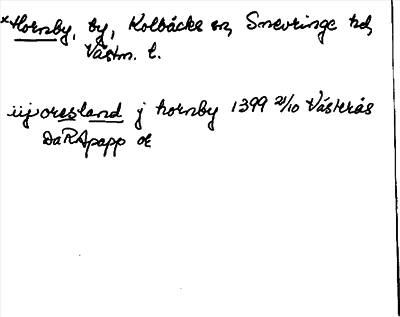 *Hornby, by, Kolbäcks sn, Snevringe hd,
Västm. l.
iij øresland j hornby 1399 21/10 Västerås
DaRApapp or